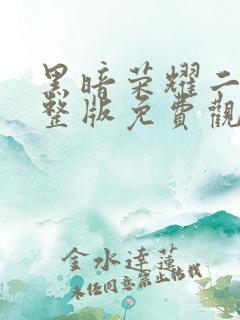 黑暗荣耀二
整版免費觀
金水達蓮
未经同意禁止转载